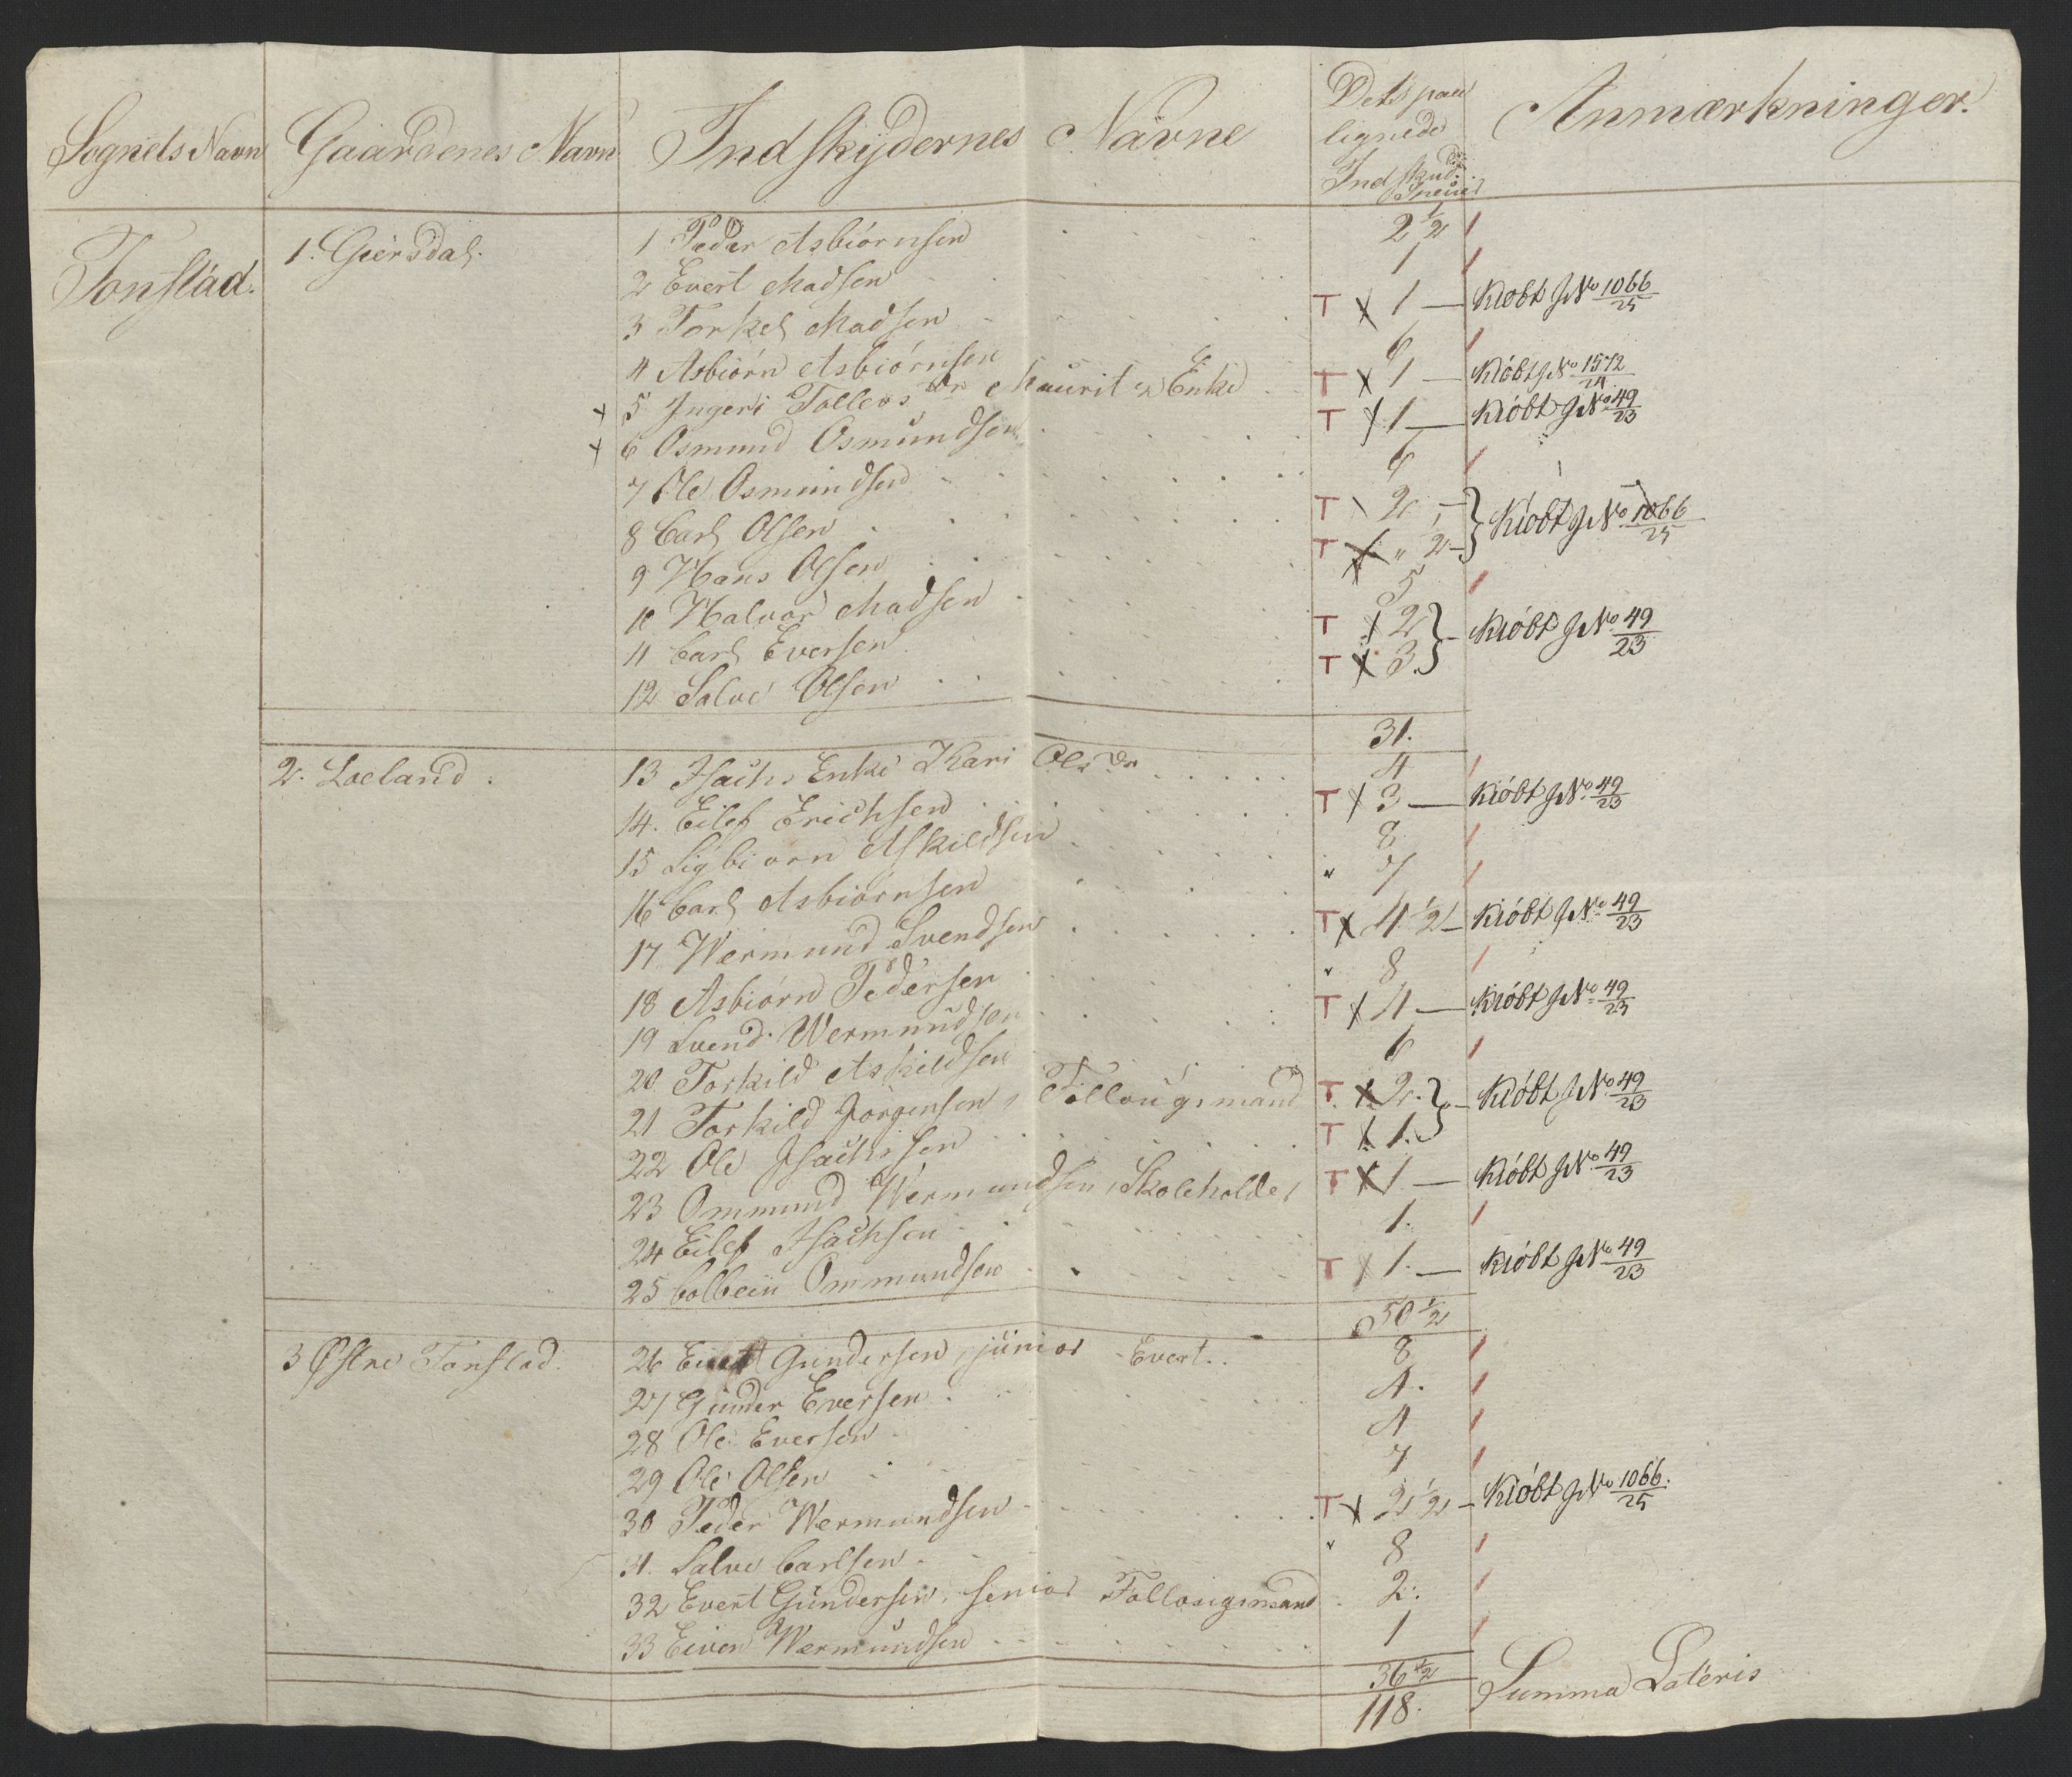 Sognets Navn Gaardenes Navn Indskydernes Navne Dets paa lignede Indskud Anmærkninger.
Tonstad. 1. Giersdal. 1 Peder Asbiörnsen 2 1/2
2 Evert Madsen 1
3 Torkel Madsen T x 1 — Kiöbt JNo 1066/25
4 Asbiörn Asbiörnsen 6
x 5 Ingeri Tollevs Dr Maurits Enke T x 1 — Kiöbt JNo 1572/24
x 6 Osmund Osmundsen T x 1 — Kiöbt JNo 49/23
7 Ole Osmundsen 6
8 Carl Olsen T 2 } Kiöbt JNo 1066/25
9 Hans Olsen T x " 2 }
10 Halvor Madsen 5
11 Carl Eversen T x 2 } Kiöbt JNo 49/23
12 Salve Olsen T x 3. }
31.
2. Loeland. 13 Isachs Enke Kari Ols Dr 4
14. Eilef Erichsen T x 3 — Kiöbt JNo 49/23
15 Sigbiorn Askildsen 8
16 Carl Asbiörnsen " 7
17 Wermund Svendsen T x 4 1/2 — Kiöbt JNo 49/23
18 Asbiörn Pedersen " 8
19 Svend Wermundsen T x 4 — Kiöbt JNo 49/23
20 Torkild Askildsen 6
21 Torkild Jörgensen, Follougsmand T x 2. } Kiöbt JNo 49/23
22 Ole Isachsen T x 1. }
23 Ommund Wermundsen, Skoleholder T x 1 — Kiöbt JNo 49/23
24 Eilef Isachsen 1.
25 Colbein Ommundsen T x 1. — Kiöbt JNo 49/23
50 1/2
3 Østre Tonstad. 26 Evert Gundersen, junior Evert. 8
27 Gunder Eversen 4.
28 Ole Eversen 4
29 Ole Olsen 7
30 Peder Wermundsen T x 2 1/2 — Kiöbt JNo 1066/25.
31. Salve Carlsen " 8
32 Evert Gundersen, senior Follougsmand 2.
33 Eiven Wermundsen 1
36 1/2
118. Summa Lateris